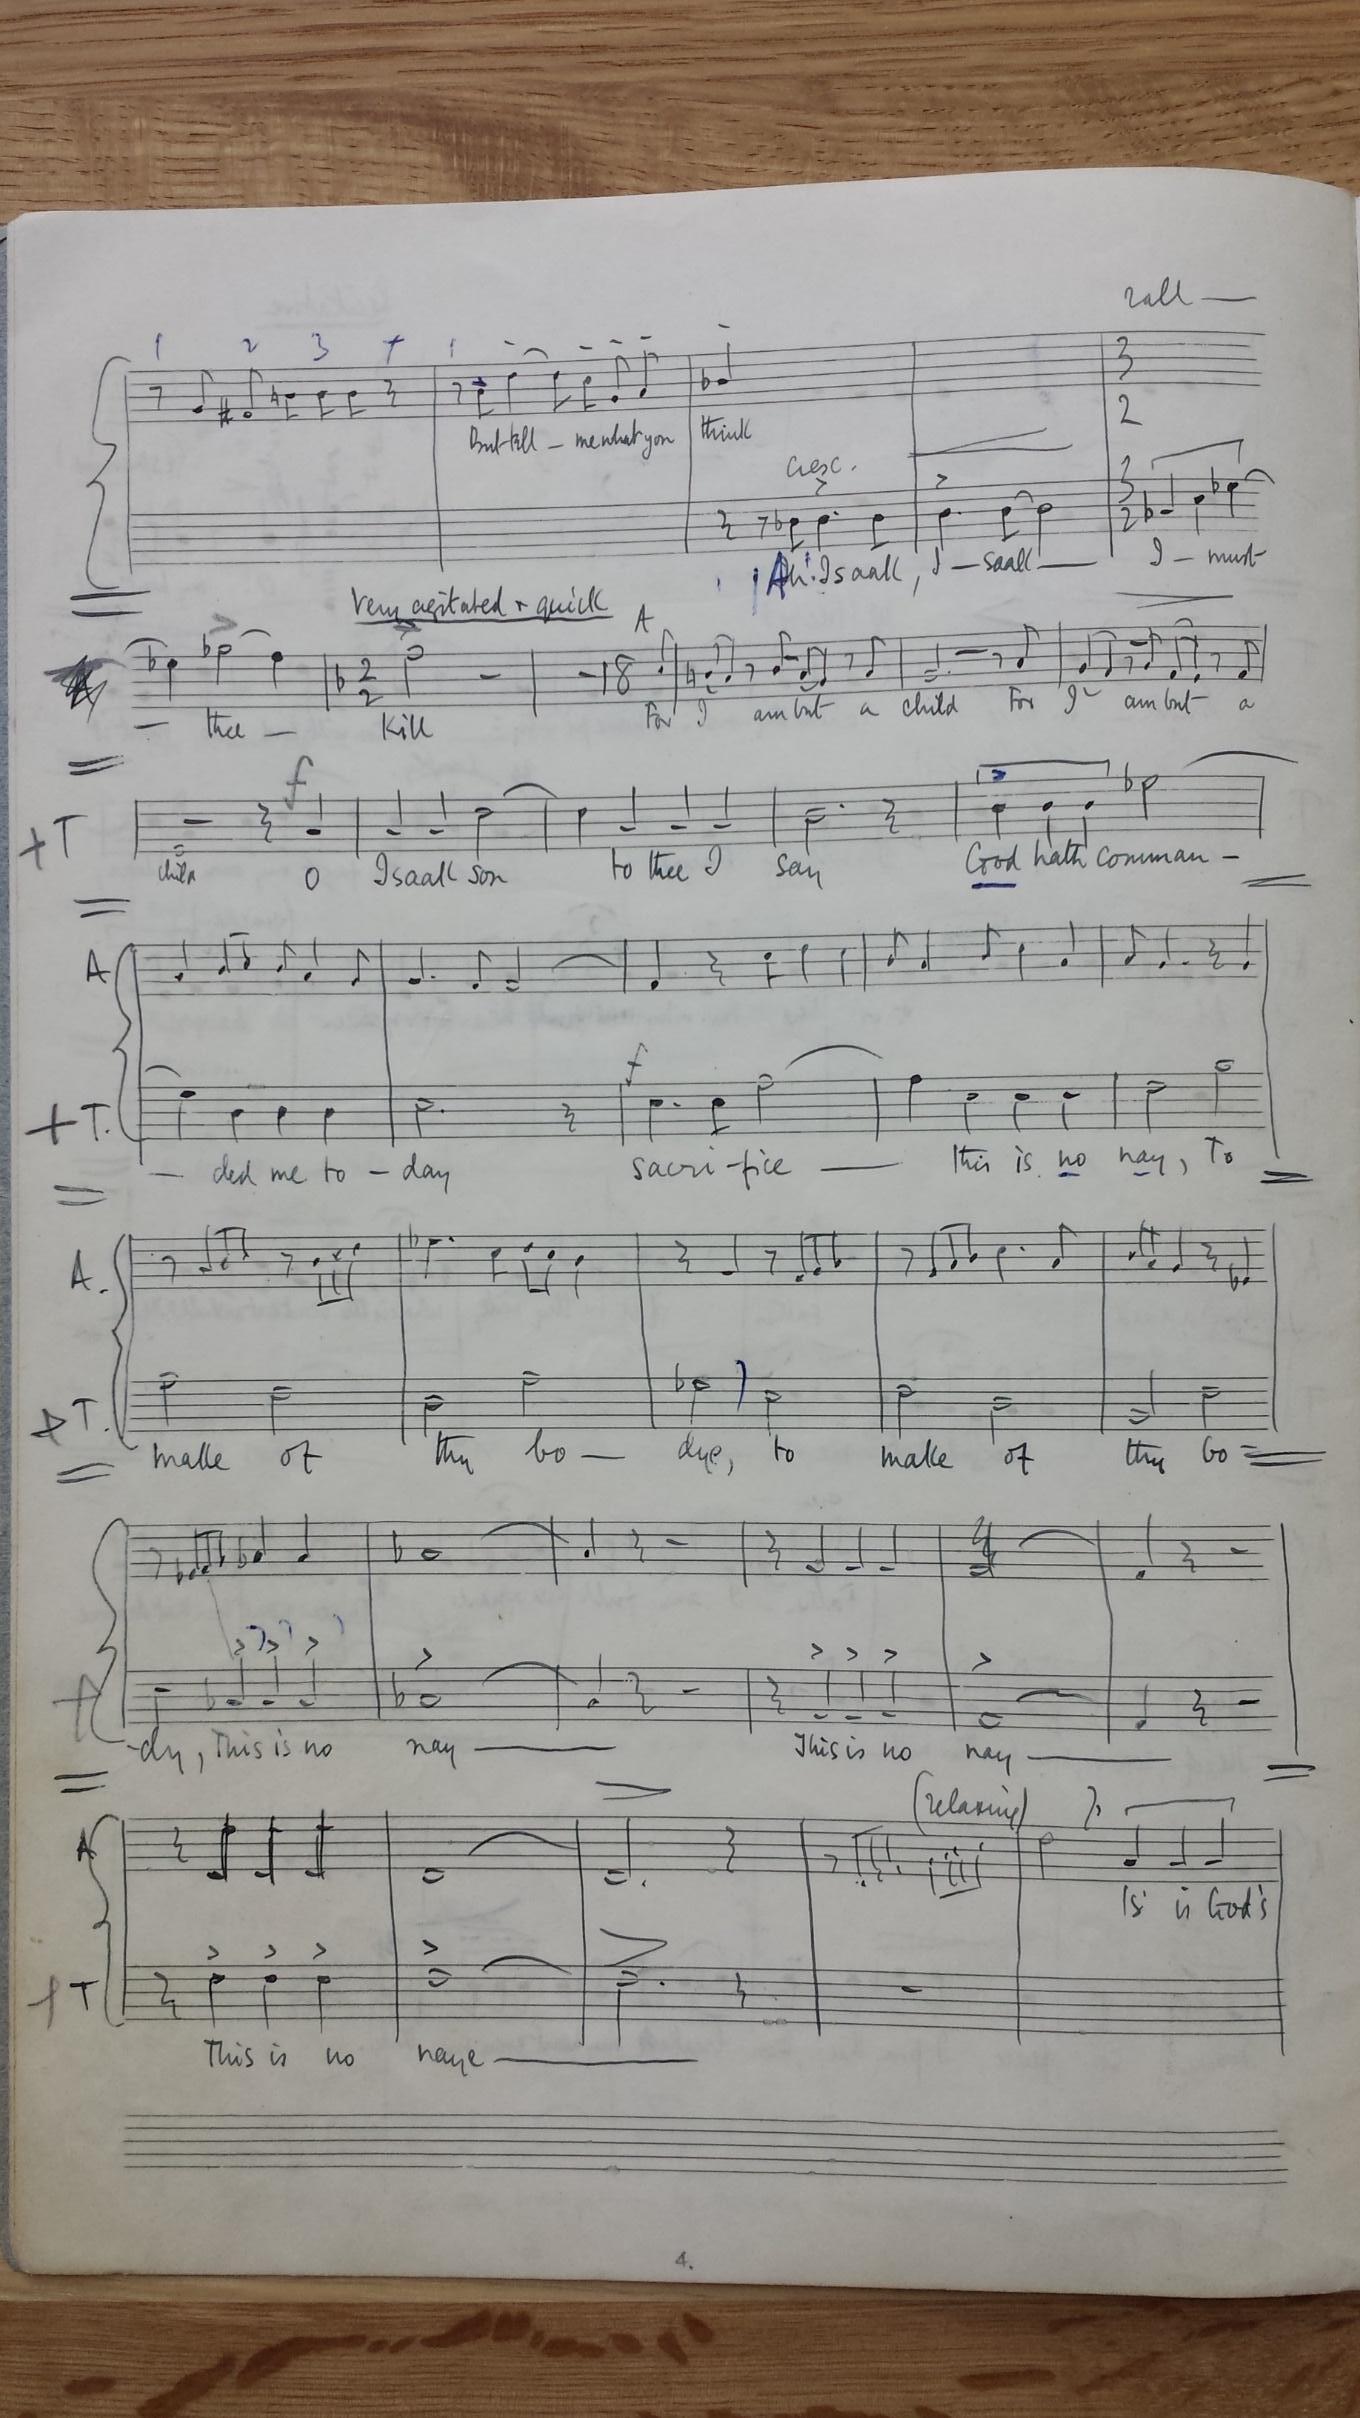 rall —
1 2 3 4 1
3
2
But tell — me what you think
cresc.
3
2
Ah! Isaak, I — saak — I — must
Very agitated + quick
A
2
2
18
— thee — Kill For I am but a child For I am but a
f
+T
child O Isaak son to thee I say God hath comman –
A
f
+T.
— ded me to – day sacri-fice — this is no nay, To
A.
+T.
make of thy bo — dye, to make of thy bo
-dy, This is no nay — This is no nay —
(relaxing)
A
Is is God's
+T
This is no naye —
4.